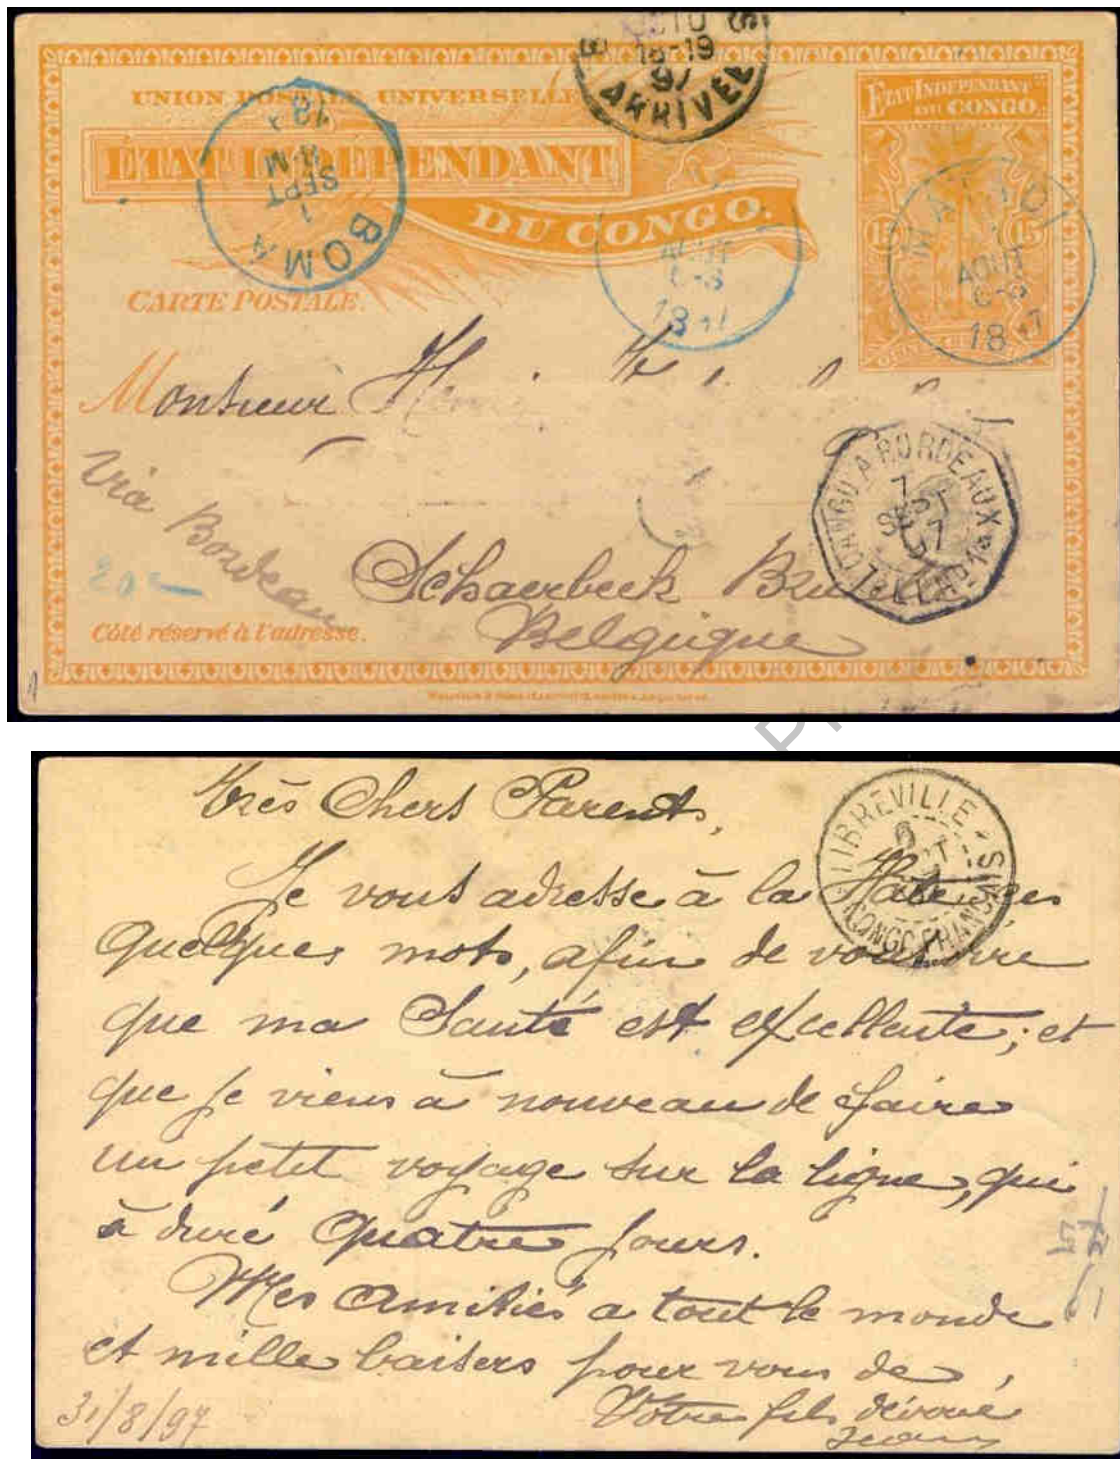 UNION POSTALE UNIVERSELLE
ÉTAT INDÉPENDANT
DU CONGO.
CARTE POSTALE.
ETAT INDEPENDANT
DU CONGO
15 15
ARRIVEE
18-19
97
BOMA
1
SEPT
MATADI
AOUT
6-8
AOUT
6-8
Monsieur
Via Bordeaux
LOANGO A BORDEAUX
7
SEPT
97
L.L. No 1
Schaerbeek
Belgique
20
Côté réservé à l'adresse.
LIBREVILLE
6
CONGO FRANCAIS
Très Chers Parents,
Je vous adresse à la Hate ces
quelques mots, afin de vous dire
que ma Santé est excellente; et
que je viens à nouveau de faire
un petit voyage sur la ligne, qui
à duré quatre jours.
Mes Amitiés a tout le monde
et mille baisers pour vous de,
Votre fils dévoué
Jean
31/8/97